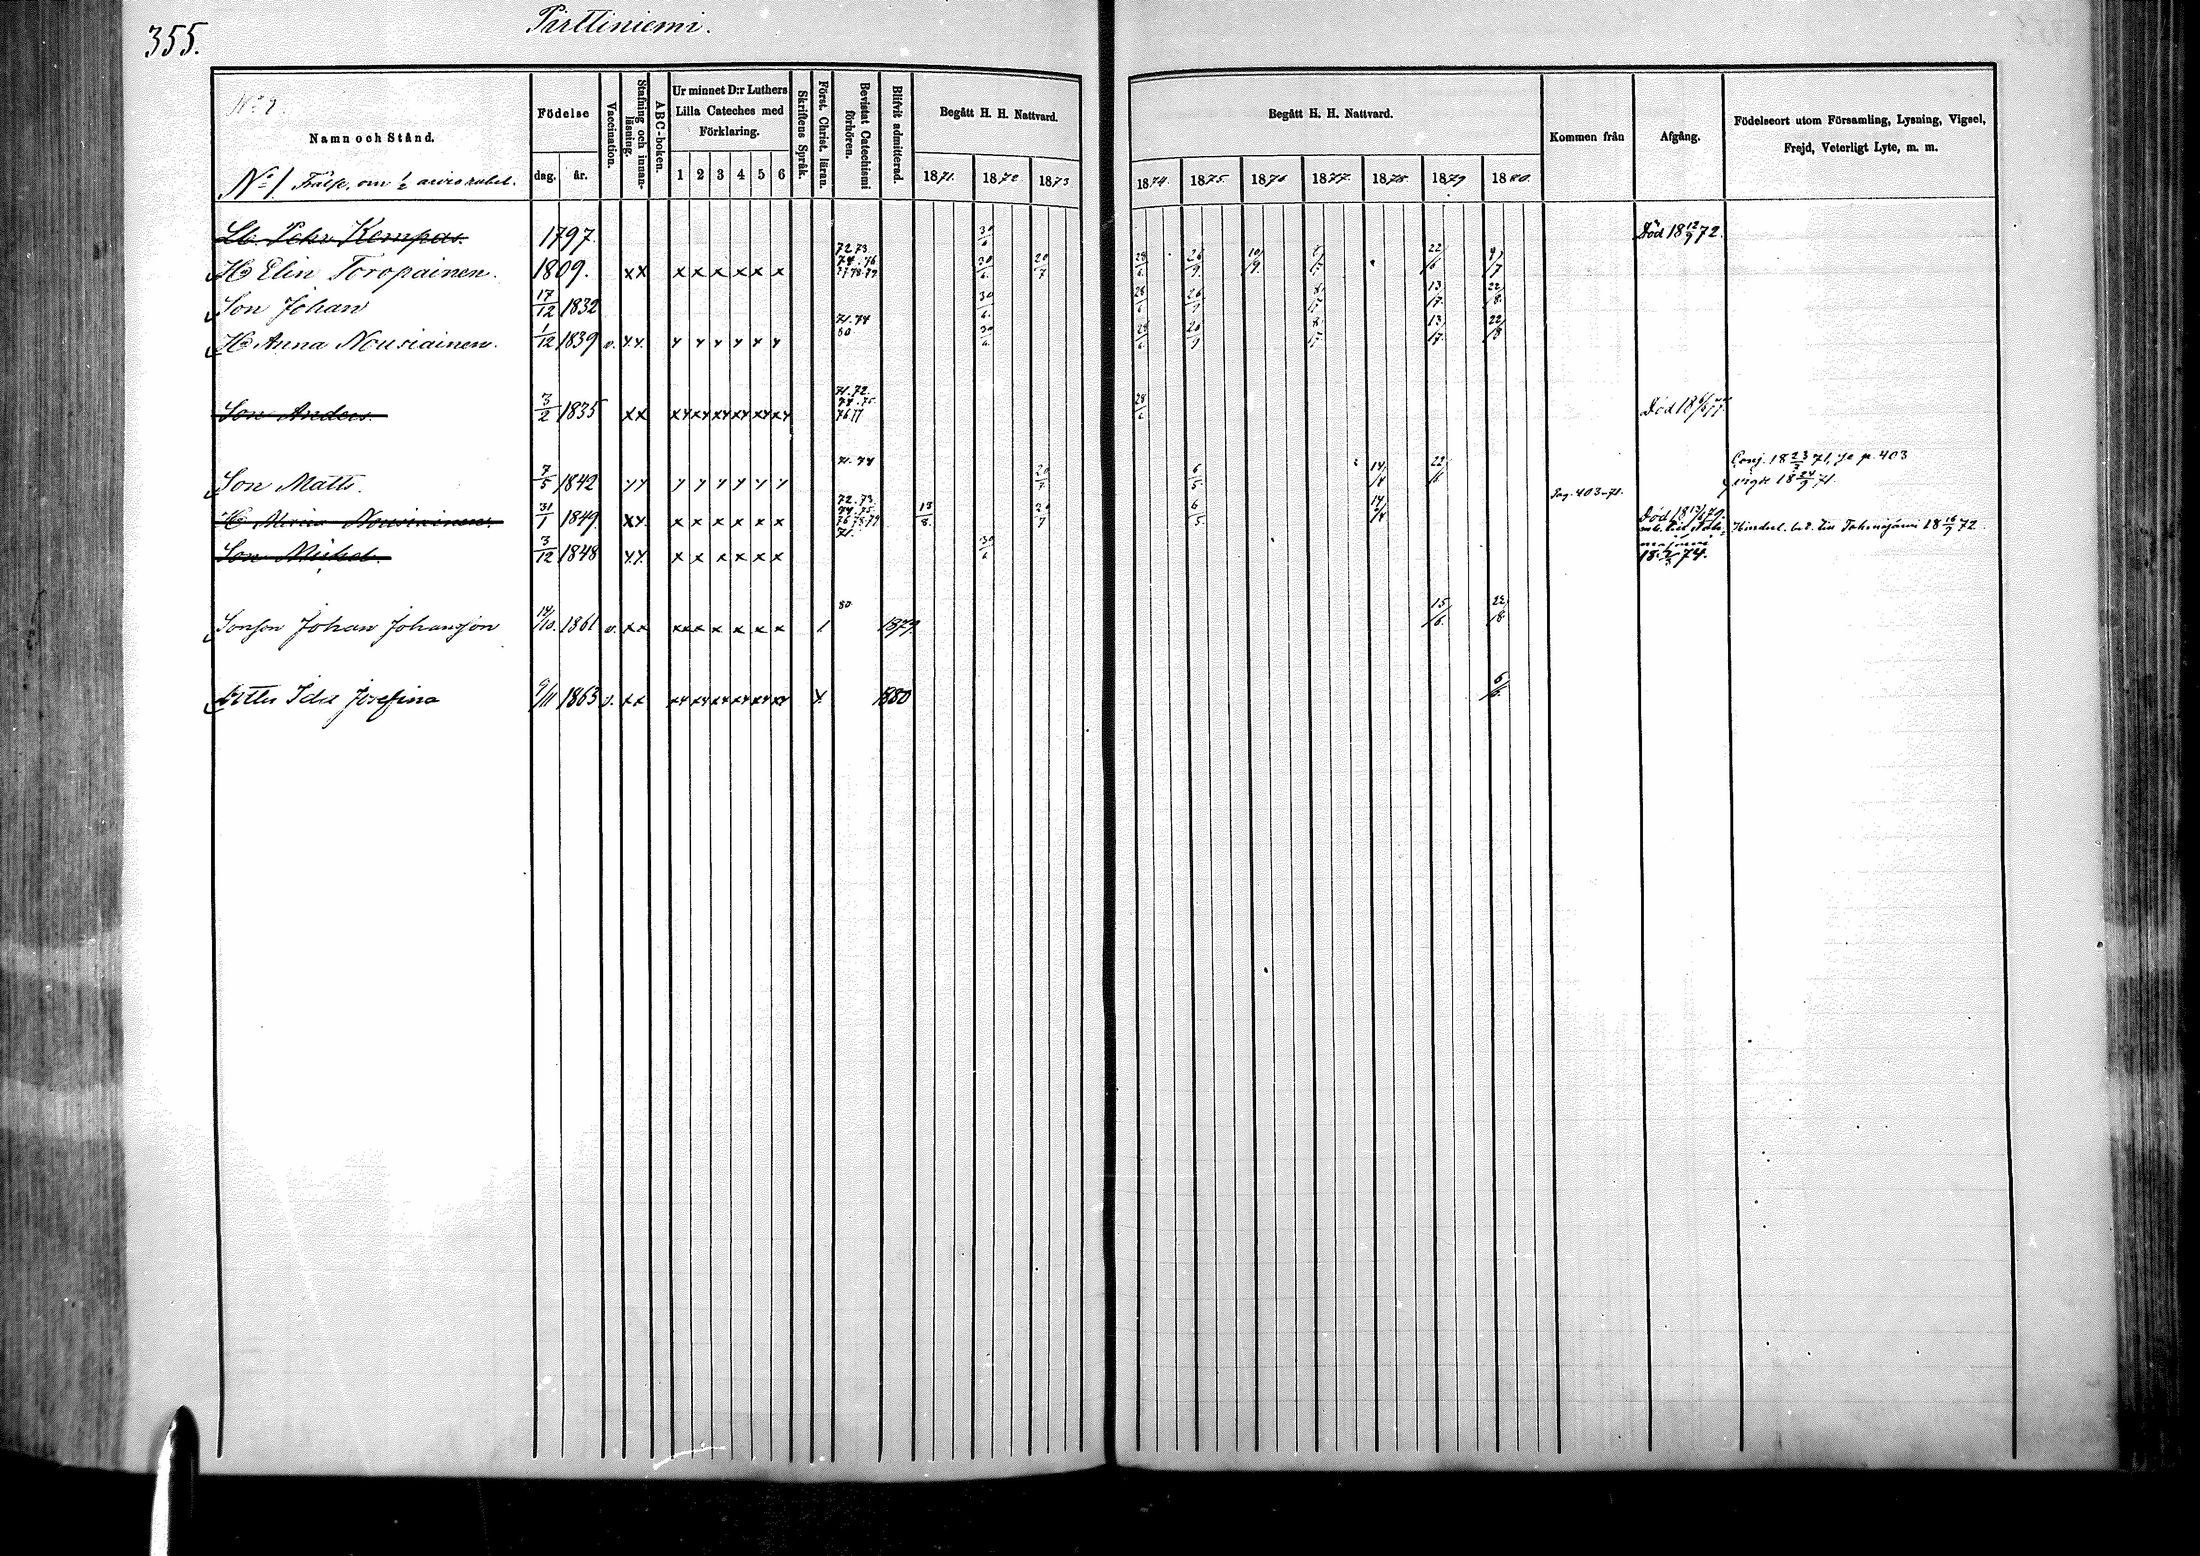 355.
Pirttiniemi.
Namn och Stånd.
No 1. Frälse, om 1/2
Födelse
dag. år.
Vaccination.
Stafning och innan-läsning.
ABC-boken.
Ur minnet D:r Luthers
Lilla Cateches med
Förklaring.
1 2 3 4 5 6
Skriftens Språk.
Först. Christ. läran.
Bevistat Catechismi förhören.
Blifvit admitterad.
Begått H. H. Nattvard.
1871. 1872 1873
Begått H. H. Nattvard.
1874. 1875. 1876 1877. 1878. 1879 1880.
Kommen från
Afgång.
Födelseort utom Församling, Lysning, Vigsel,
Frejd, Veterligt Lyte, m. m.
Lb. Pehr Kempas. 1797. 30/6 Död 18 12/9 72.
H. Elin Toropainen. 1809. xx x x x x x x 72.73 74.76 77.78.79 30/6. 20/7 28/6. 26/9. 10/9. 22/6 4/7
Son Johan 17/12 1832 30/6. 28/6 26/9 8/17 13/17. 22/8.
H. Anna Nousiainen. 1/12 1839 v. xx x x x x x x 71.74 80 30/6. 28/6. 26/9 8/17 13/17. 22/8
Son Anders. 3/2 1835 xx xx xx xx xx xx xx 71.72. 74.75 76 77 28/6 Död 18 77.
Son Matts. 7/5 1842 xx x x x x x x 71.74 20/7. 6/5. 14/4 22/6 Conj. 18 23/7 71, se p. 403
vigde 18 24/9 71.
H. Maria Nousiainen. 31/1 1849 xx x x x x x x 72.73. 74.75. 76.78.79 13/8. 20/7 6/5. 14/4 Pag. 403-71. Död 18 79.
Son Michel. 3/12 1848 xx x x x x x x 71. 30/6 18 2/3 74. Hinderl. bet. till Tohmajärvi 18 16/9 72.
Sonson Johan Johansson 14/10. 1861 v. xx xx x x x x x 1. 80 1879. 15/6. 22/8.
Dotter Ida Josefina 9/11 1863 v. xx xx xx xx xx xx xx x 1880 6/6.